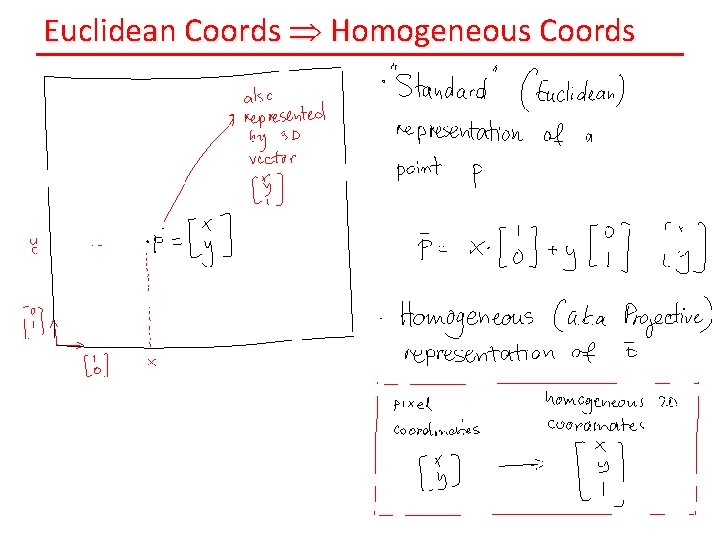 Euclidean Coords ⇒ Homogeneous Coords
also
represented
by 3D
vector
[x y 1]
p̄ = [x y]
y
[0 1]
[1 0]
x
• "Standard" (Euclidean)
representation of a
point p
p̄ = x · [1 0] + y [0 1] [x y]
• Homogeneous (a.k.a Projective)
representation of
pixel
coordinates
[x y]
→
homogeneous 2D
coordinates
[x y 1]